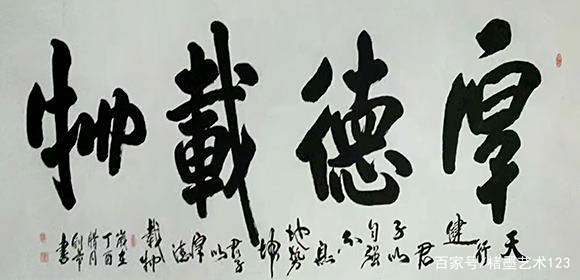 厚德載物
天行
健
君
子以
自强
不
息
地势
坤
君子
以
厚
德
載物
歲在
丁酉
腊月
書
百家号/楮墨艺术123